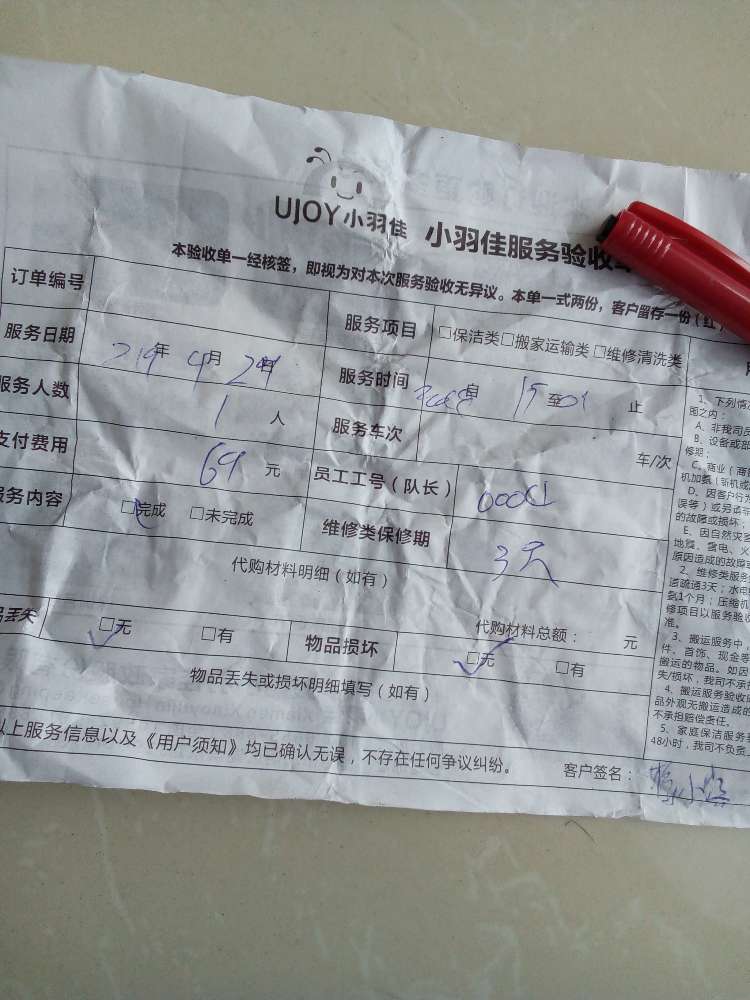 UJOY小羽佳 小羽佳服务验收
本验收单一经核签，即视为对本次服务验收无异议。本单一式两份，客户留存一份（红）
订单编号 服务项目 □保洁类□搬家运输类□维修清洗类
服务日期 219年 4月 服务时间 自 至 止
服务人数 1 人 服务车次 车/次
支付费用 69 元 员工工号（队长）
服务内容 □完成 □未完成 维修类保修期 3天
代购材料明细（如有）
代购材料总额： 元
品丢失 □无 □有 物品损坏 □无 □有
物品丢失或损坏明细填写（如有）
以上服务信息以及《用户须知》均已确认无误，不存在任何争议纠纷。 客户签名：
1、下列情
围之内：
A、非我司员
B、设备或部
修拒；
C、商业（商
机加氨（新机或
D、因客户行为
误等）或另请
的故障或损坏
E、因自然灾
地震、雷电、火
原因造成的故障
2、维修类服务
道疏通3天；水电
到1个月；压缩机
修项目以服务验收
准。
3、搬运服务中，
件、首饰、现金等
搬运的物品。如因
失/损坏，我司不承
4、搬运服务验收
品外观无搬运造成的
不承担赔偿责任。
5、家庭保洁服务
48小时，我司不负责